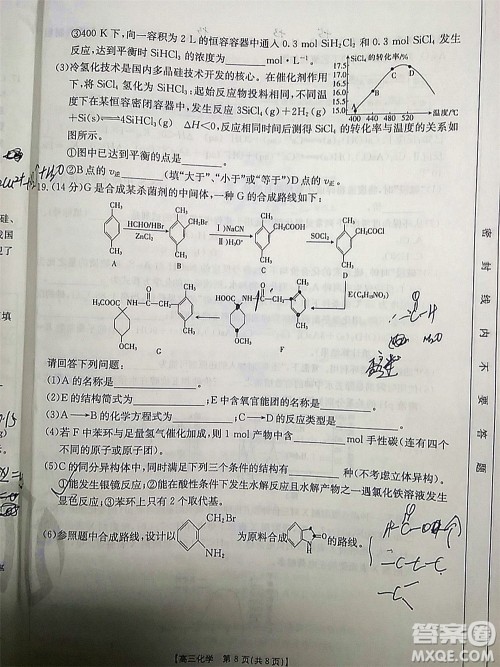 ③400 K 下,向一容积为 2 L 的恒容容器中通入 0.3 mol SiH₂Cl₂ 和 0.3 mol SiCl₄ 发生
反应,达到平衡时 SiHCl₃ 的浓度为 mol·L⁻¹。
(3)冷氢化技术是国内多晶硅技术开发的核心。在催化剂作用
下,将 SiCl₄ 氢化为 SiHCl₃:起始反应物投料相同,不同温
度下在某恒容密闭容器中,发生反应 3SiCl₄(g)+2H₂(g)
+Si(s)⇌4SiHCl₃(g) ΔH<0,反应同一时间后测得 SiCl₄ 的转化率与温度的关系如
图所示。
SiCl₄ 的转化率/%
17.5
17.0
16.5
16.0
15.5
15.0
A
B
C
D
400 440 480 520
温度/℃
①图中已达到平衡的点是 。
②B 点的 v正 (填“大于”、“小于”或“等于”)D 点的 v逆。
19.(14 分)G 是合成某杀菌剂的中间体,一种 G 的合成路线如下:
HCHO/HBr
ZnCl₂
CH₂Br
Ⅰ)NaCN
Ⅱ)H₃O⁺
CH₂COOH
SOCl₂
CH₂COCl
A
B
C
D
E(C₈H₁₅NO₃)
H₃COOC
OCH₃
G
HOOC
OCH₃
F
请回答下列问题:
(1)A 的名称是 。
(2)E 的结构简式为 ,E 中含氧官能团的名称是 。
(3)A→B 的化学方程式为 ;C→D 的反应类型是 。
(4)若 F 中苯环与足量氢气催化加成,则 1 mol 产物中含 mol 手性碳(连有四个
不同的原子或原子团)。
(5)C 的同分异构体中,同时满足下列三个条件的结构有 种(不考虑立体异构)。
①能发生银镜反应;②能在酸性条件下发生水解反应且水解产物之一遇氯化铁溶液发生
显色反应;③苯环上只有 2 个取代基。
(6)参照题中合成路线,设计以
CH₂Br
NH₂
为原料合成
的路线。
【高三化学 第 8 页(共 8 页)】
密 封 线 内 不 要 答 题
答案圈
MXQE.COM